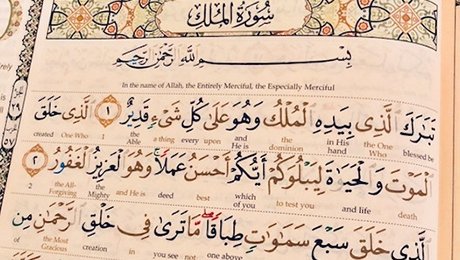 سُورَةُ الْمُلْكِ
بِسْمِ ٱللَّهِ ٱلرَّحْمَٰنِ ٱلرَّحِيمِ
In the name of Allah, the Entirely Merciful, the Especially Merciful
تَبَٰرَكَ ٱلَّذِى بِيَدِهِ ٱلْمُلْكُ وَهُوَ عَلَىٰ كُلِّ شَىْءٍ قَدِيرٌ ١ ٱلَّذِى خَلَقَ
created One Who 1 the Able a thing every upon and He is the dominion in His hand the One Who blessed be
ٱلْمَوْتَ وَٱلْحَيَوٰةَ لِيَبْلُوَكُمْ أَيُّكُمْ أَحْسَنُ عَمَلًا ۚ وَهُوَ ٱلْعَزِيزُ ٱلْغَفُورُ ٢
2 the All-Forgiving the Mighty and He is deed best which of you to test you and life death
ٱلَّذِى خَلَقَ سَبْعَ سَمَٰوَٰتٍ طِبَاقًا ۖ مَّا تَرَىٰ فِى خَلْقِ ٱلرَّحْمَٰنِ مِن
of the Most Gracious creation in you see not one above
٢٩
٥٧